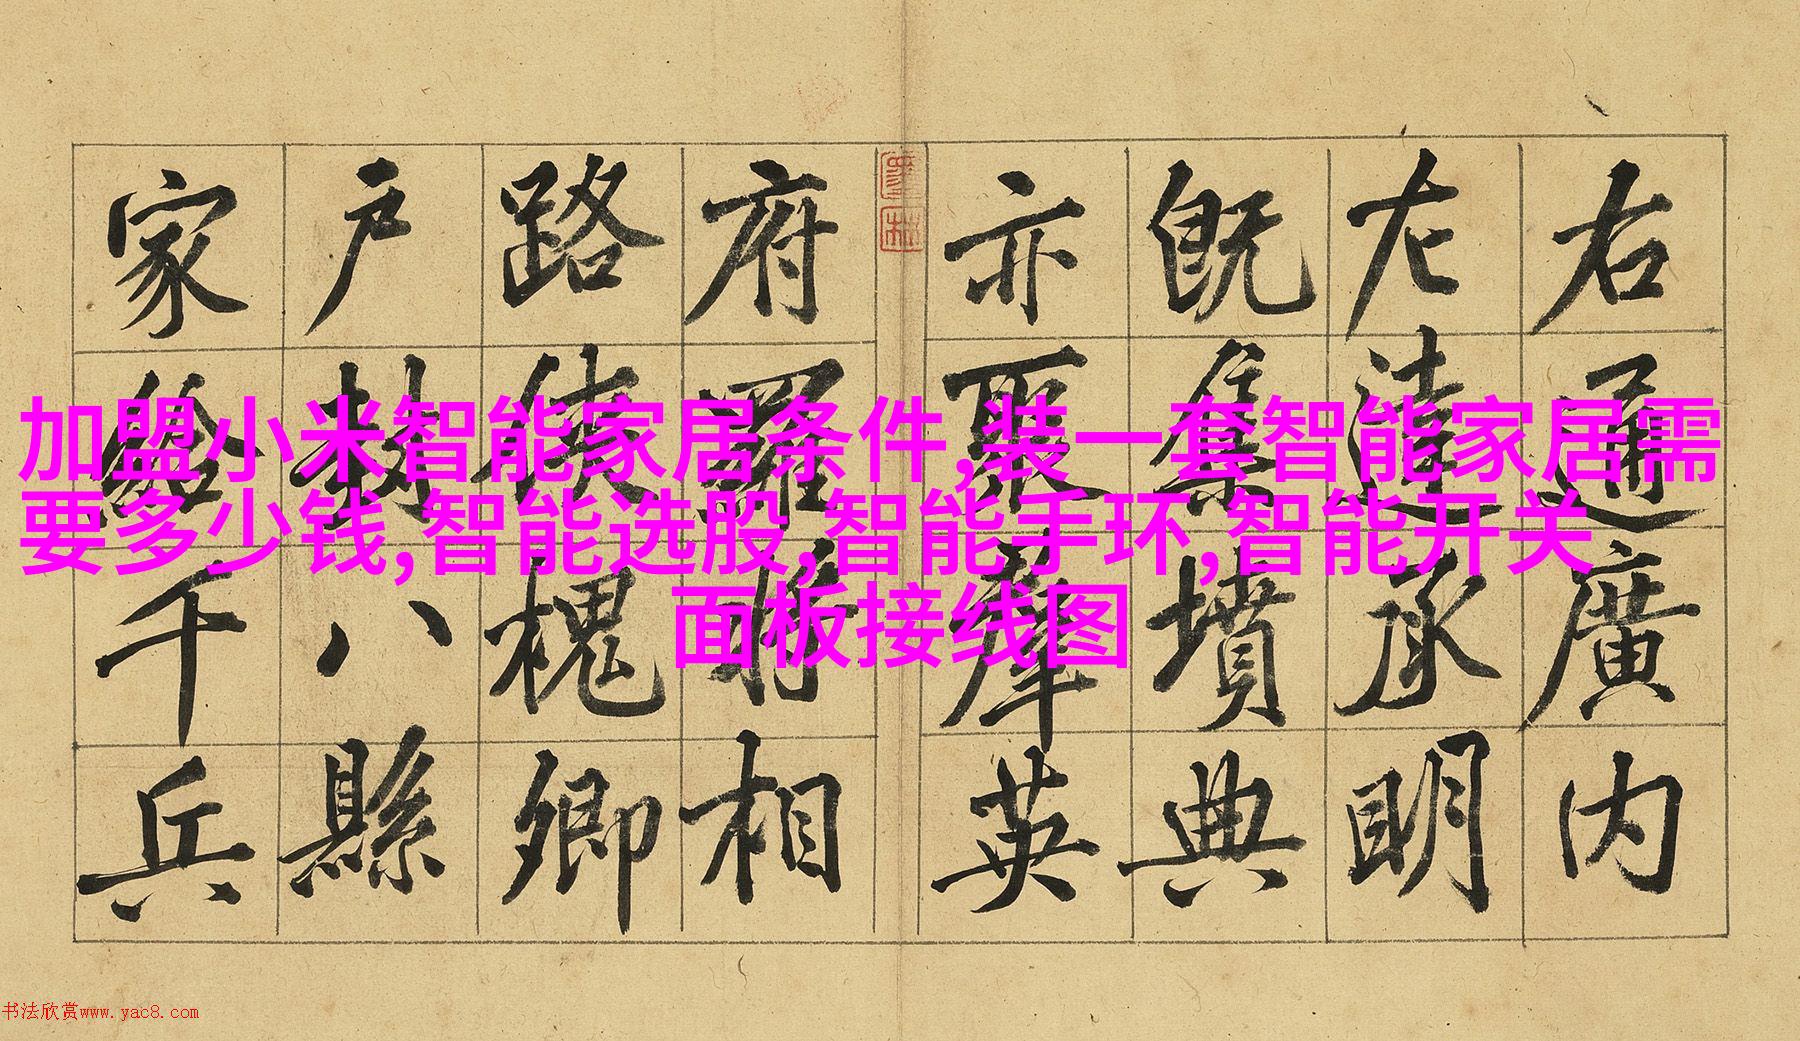 右通廣內
左達承明
既集墳典
亦聚羣英
府羅將相
路俠槐卿
戶封八縣
家給千兵
加盟小米智能家居条件,装一套智能家居需
要多少钱,智能选股,智能手环,智能开关
面板接线图
书法欣赏www.yac8.com